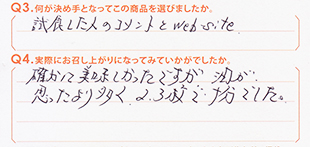 Q3.何が決め手となってこの商品を選びましたか。
試食した人のコメントとweb-site.
Q4.実際にお召し上がりになってみていかがでしたか。
確かに美味しかったですが 油が
思ったより多く、2.3枚で十分でした。